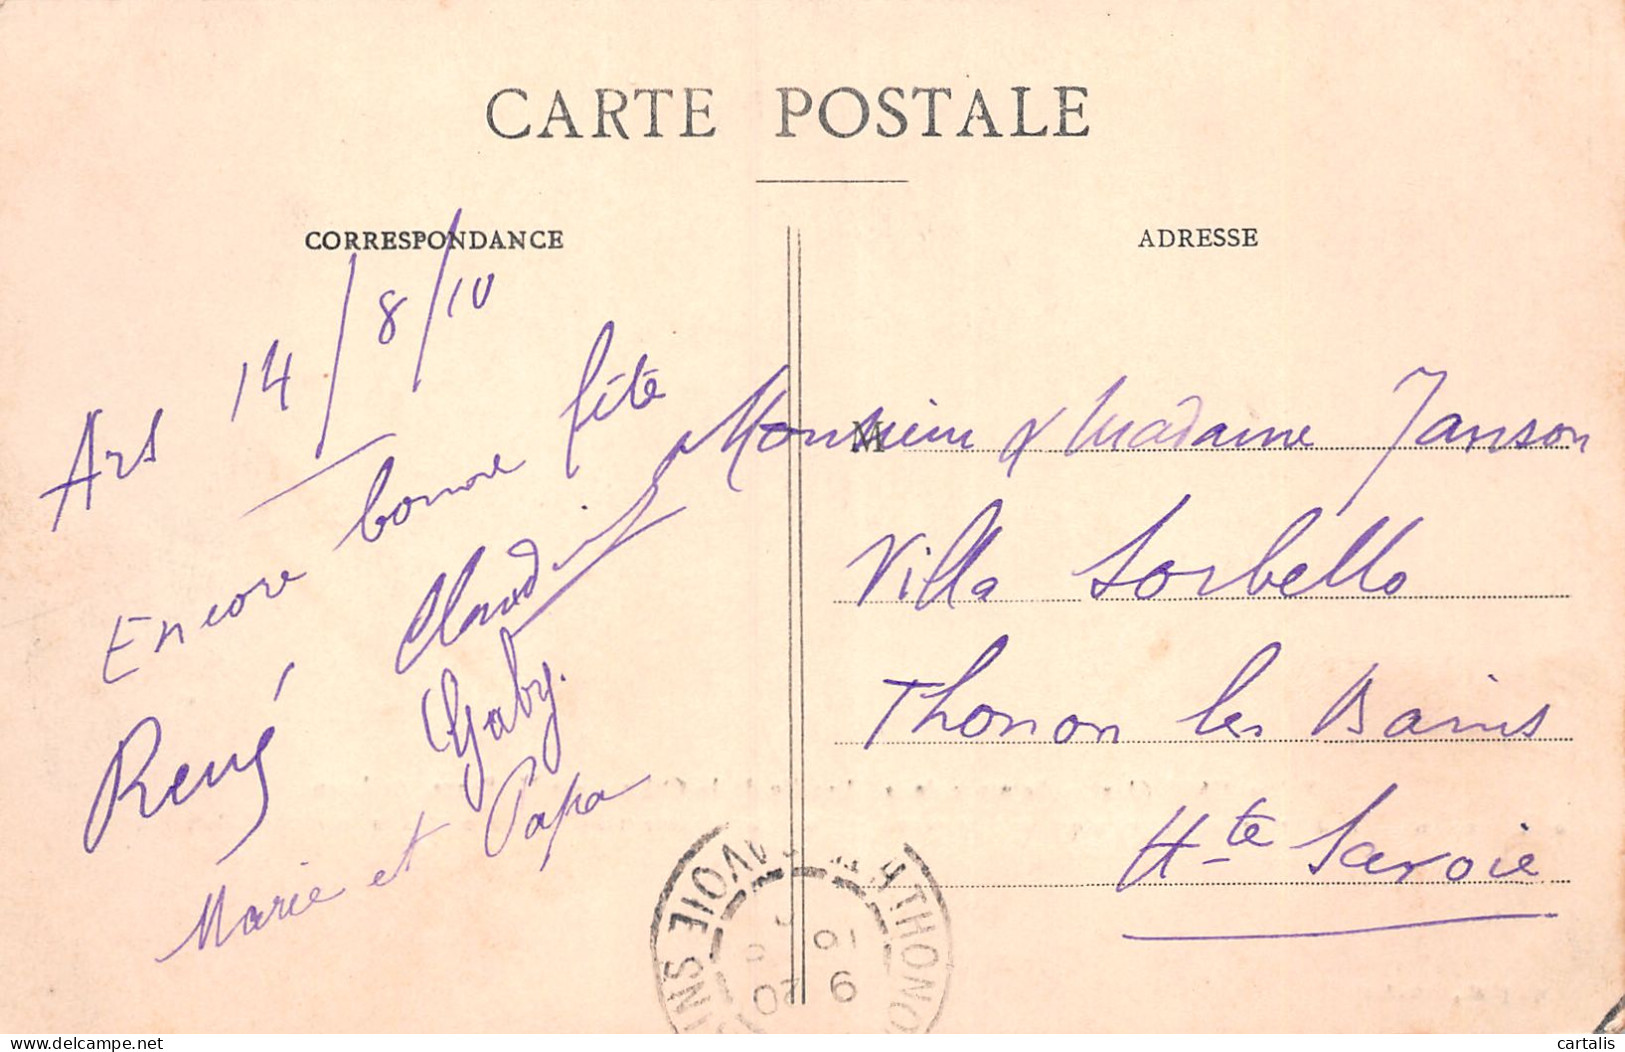 CARTE POSTALE
CORRESPONDANCE
Ars 14/8/10
Encore bonne fête
René Claudius
Gaby.
Marie et Papa
ADRESSE
M
Monsieur & Madame Janson
Villa Sorbello
Thonon les Bains
Hte Savoie
THONON
INS
VOIE
delcampe.net
cartalis